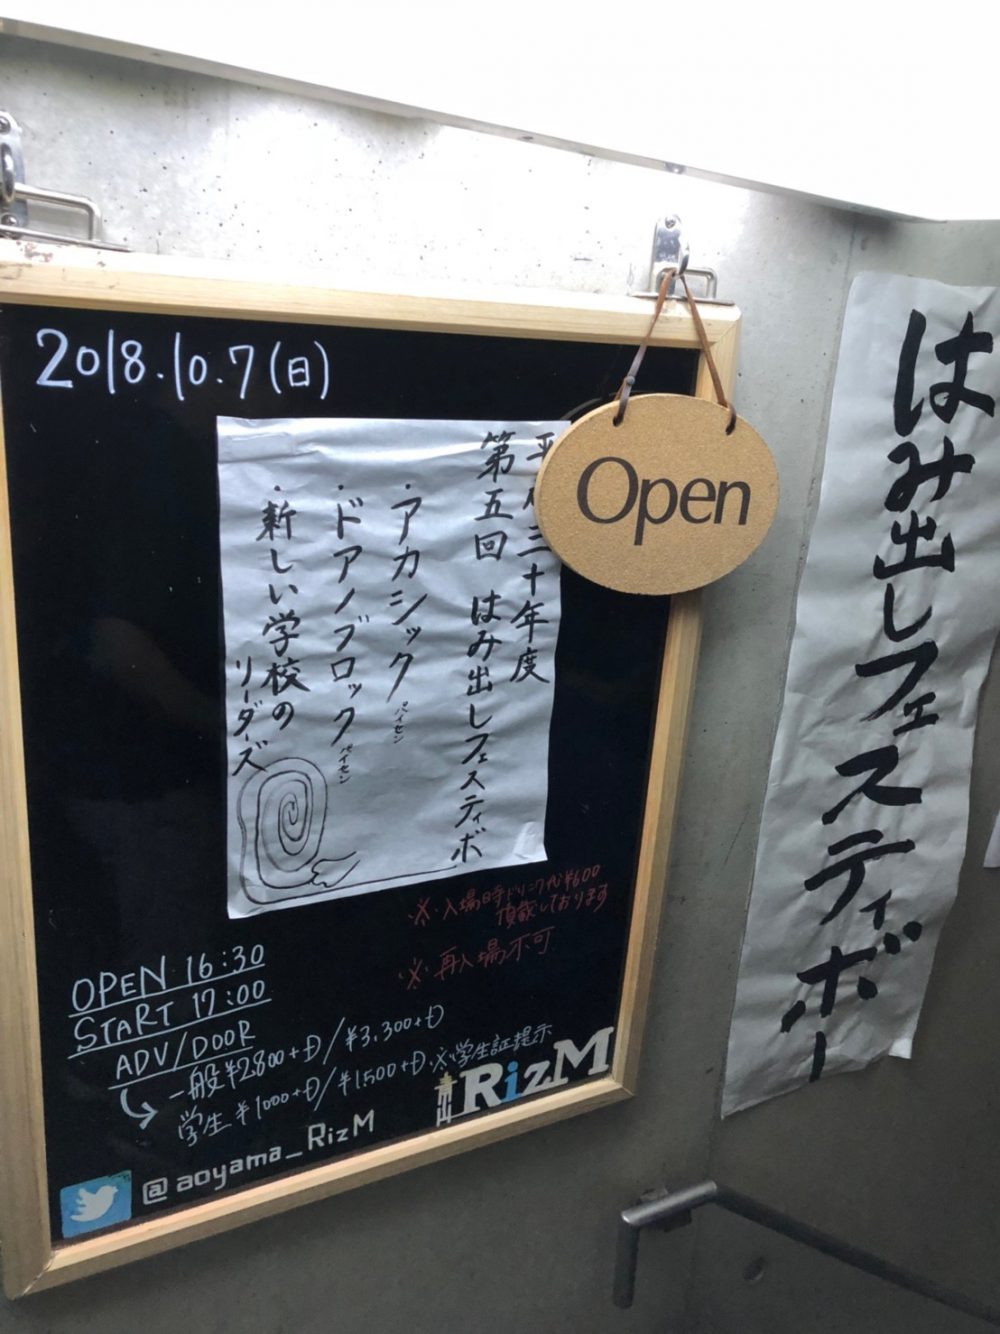 2018.10.7(日)
平成三十年度
第五回 はみ出しフェスティボ
・アカシックパイセン
・ドアノブロックパイセン
・新しい学校の
リーダーズ
Open
はみ出しフェスティボー
※入場時ドリンク代¥600
頂戴しております
※再入場不可
OPEN 16:30
START 17:00
ADV/DOOR
一般¥2800+Ð/¥3,300+Ð
学生¥1000+Ð/¥1500+Ð ※学生証提示
RizM
@aoyama_RizM